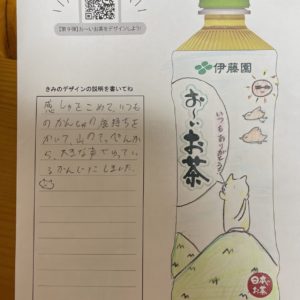 【第9弾】お〜いお茶をデザインしよう!
きみのデザインの説明を書いてね
感しゃをこめて、いつも
のかんしゃの気持ちを
かいて、山のてっぺんか
ら、大きな声でゆってい
るかんじにしました。
伊藤園
お〜いお茶
いつもありがとう!
日本の
お茶